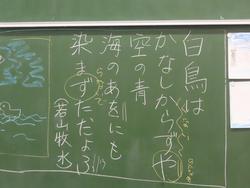 白鳥は
かなしからずや
空の青
海のあをにも
染まずただよふ
(若山牧水)